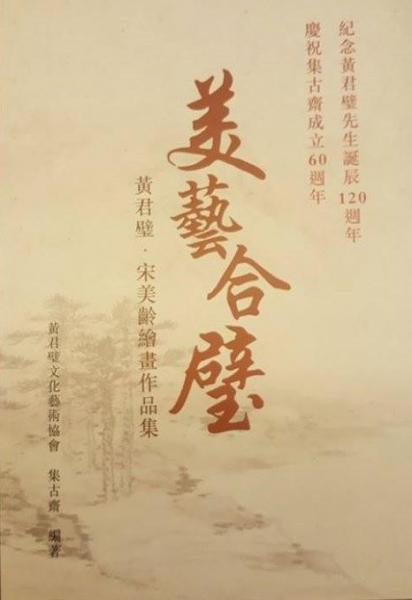 紀念黃君璧先生誕辰120週年
慶祝集古齋成立60週年
美藝合璧
黃君璧·宋美齡繪畫作品集
黃君璧文化藝術協會 集古齋 編著